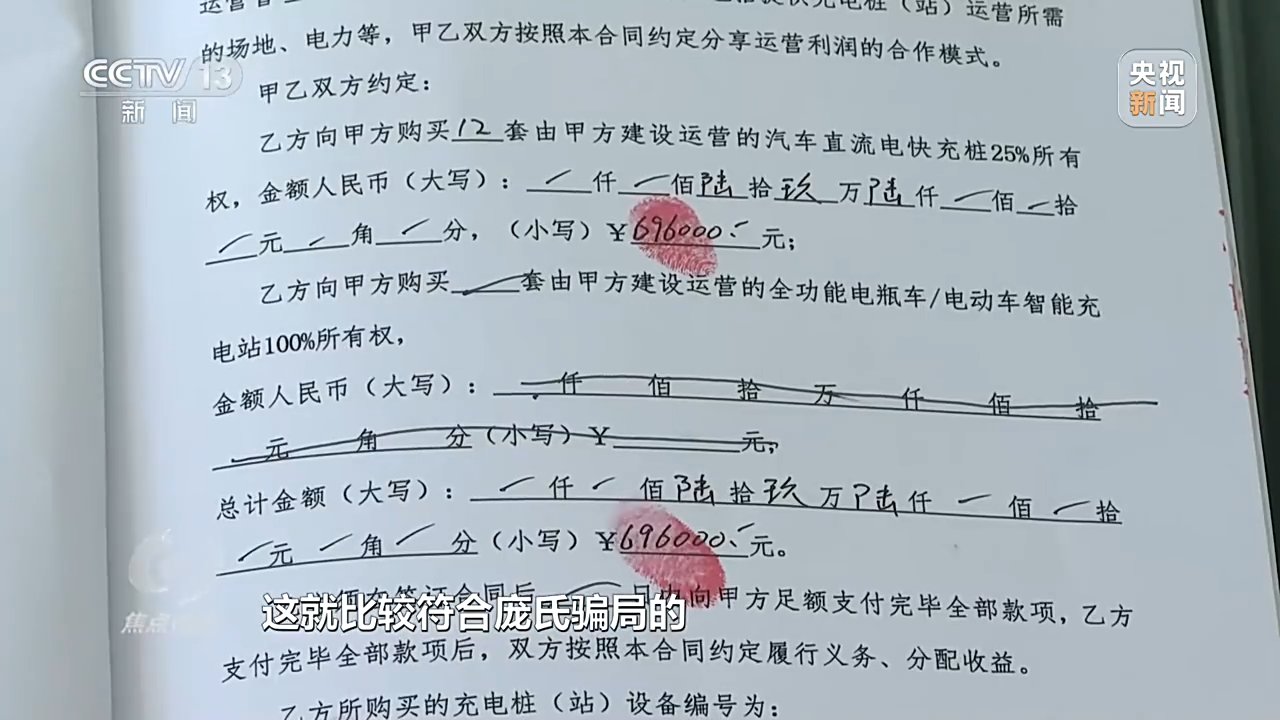 运营所需
的场地、电力等，甲乙双方按照本合同约定分享运营利润的合作模式。
CCTV 13
新闻
央视
新闻
甲乙双方约定：
乙方向甲方购买12套由甲方建设运营的汽车直流电快充桩25%所有
权，金额人民币（大写）：仟佰陆拾玖万陆仟佰拾
元角分，（小写）￥696000.-元；
乙方向甲方购买套由甲方建设运营的全功能电瓶车/电动车智能充
电站100%所有权，
金额人民币（大写）：仟佰拾万仟佰拾
元角分（小写）￥元；
总计金额（大写）：仟佰陆拾玖万陆仟佰拾
元角分（小写）￥696000.-元。
向甲方足额支付完毕全部款项，乙方
这就比较符合庞氏骗局的
支付完毕全部款项后，双方按照本合同约定履行义务、分配收益。
乙方所购买的充电桩（站）设备编号为：
焦点